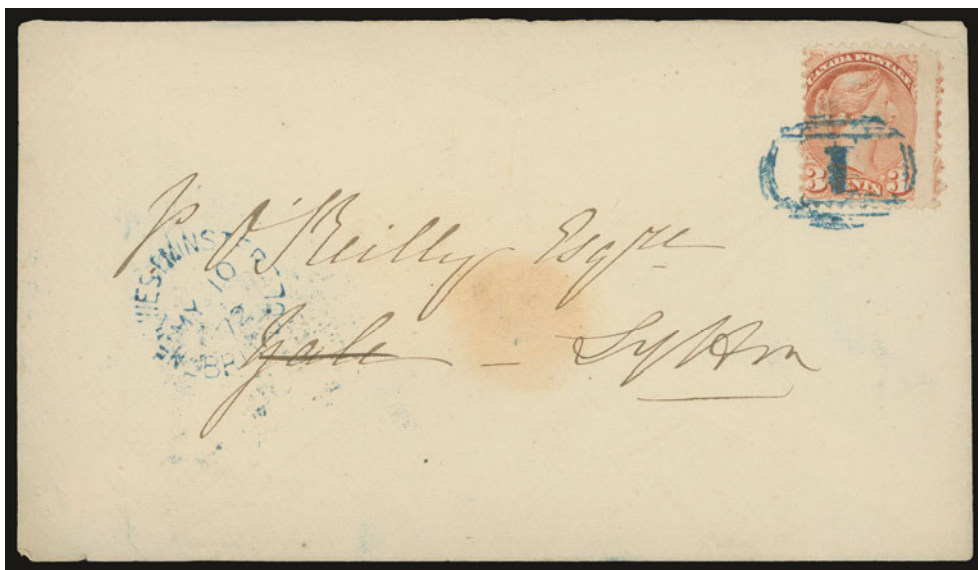 CANADA POSTAGE
3 CENTS 3
1
P. O'Reilly Esqre
Yale - Lytton
NEW WESTMINSTER
MY 10
72
BR. COL